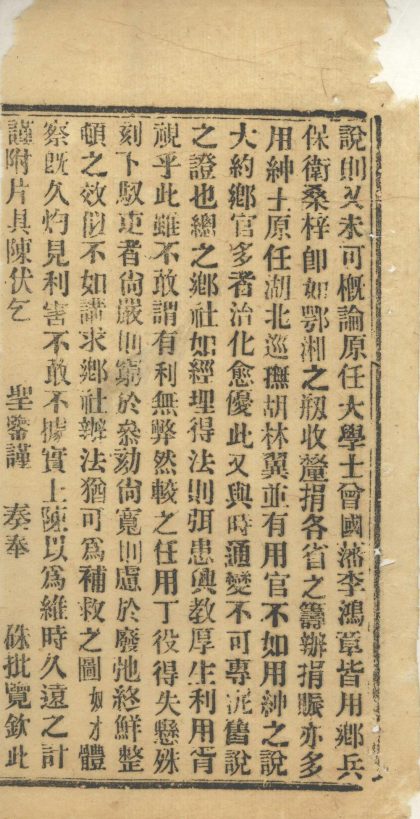 說則又未可概論原任大學士曾國藩李鴻章皆用鄉兵
保衛桑梓卽如鄂湘之剏收釐捐各省之籌辦捐賑亦多
用紳士原任湖北巡撫胡林翼並有用官不如用紳之說
大約鄉官多者治化愈優此又與時通變不可專泥舊說
之證也總之鄉社如經理得法則弭患興敎厚生利用胥
視乎此雖不敢謂有利無弊然較之任用丁役得失懸殊
刻下馭吏者尙嚴則窮於叅劾尙寬則慮於廢弛終鮮整
頓之效似不如講求鄉社辦法猶可爲補救之圖奴才體
察旣久灼見利害不敢不據實上陳以爲維時久遠之計
謹附片具陳伏乞 聖鑒謹 奏奉 硃批覽欽此